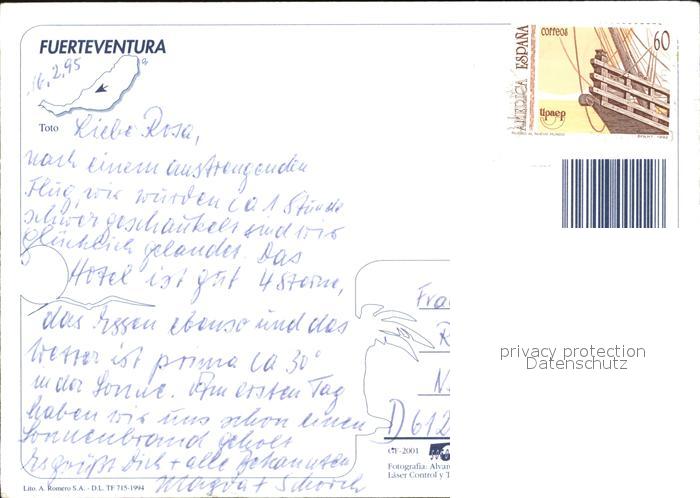 FUERTEVENTURA
16.2.95
Toto
Liebe Rosa,
nach einem anstrengenden
Flug, wir wurden ca 1 Stunde
schwer geschaukelt sind wir
glücklich gelandet. Das
Hotel ist gut 4 Sterne,
das Essen ebenso und das
Wetter ist prima ca 30°
in der Sonne. Am ersten Tag
haben wir uns schon einen
Sonnenbrand geholt
Es grüßt Dich + alle Bekannten
Magda +
Lito. A. Romero S.A. - D.L. TF 715-1994
correos
60
ESPAÑA
AMERICA
upaep
1992
Fra
R
N
D 612
CF-2001
Fotografía: Alvar
Láser Control y T
privacy protection
Datenschutz